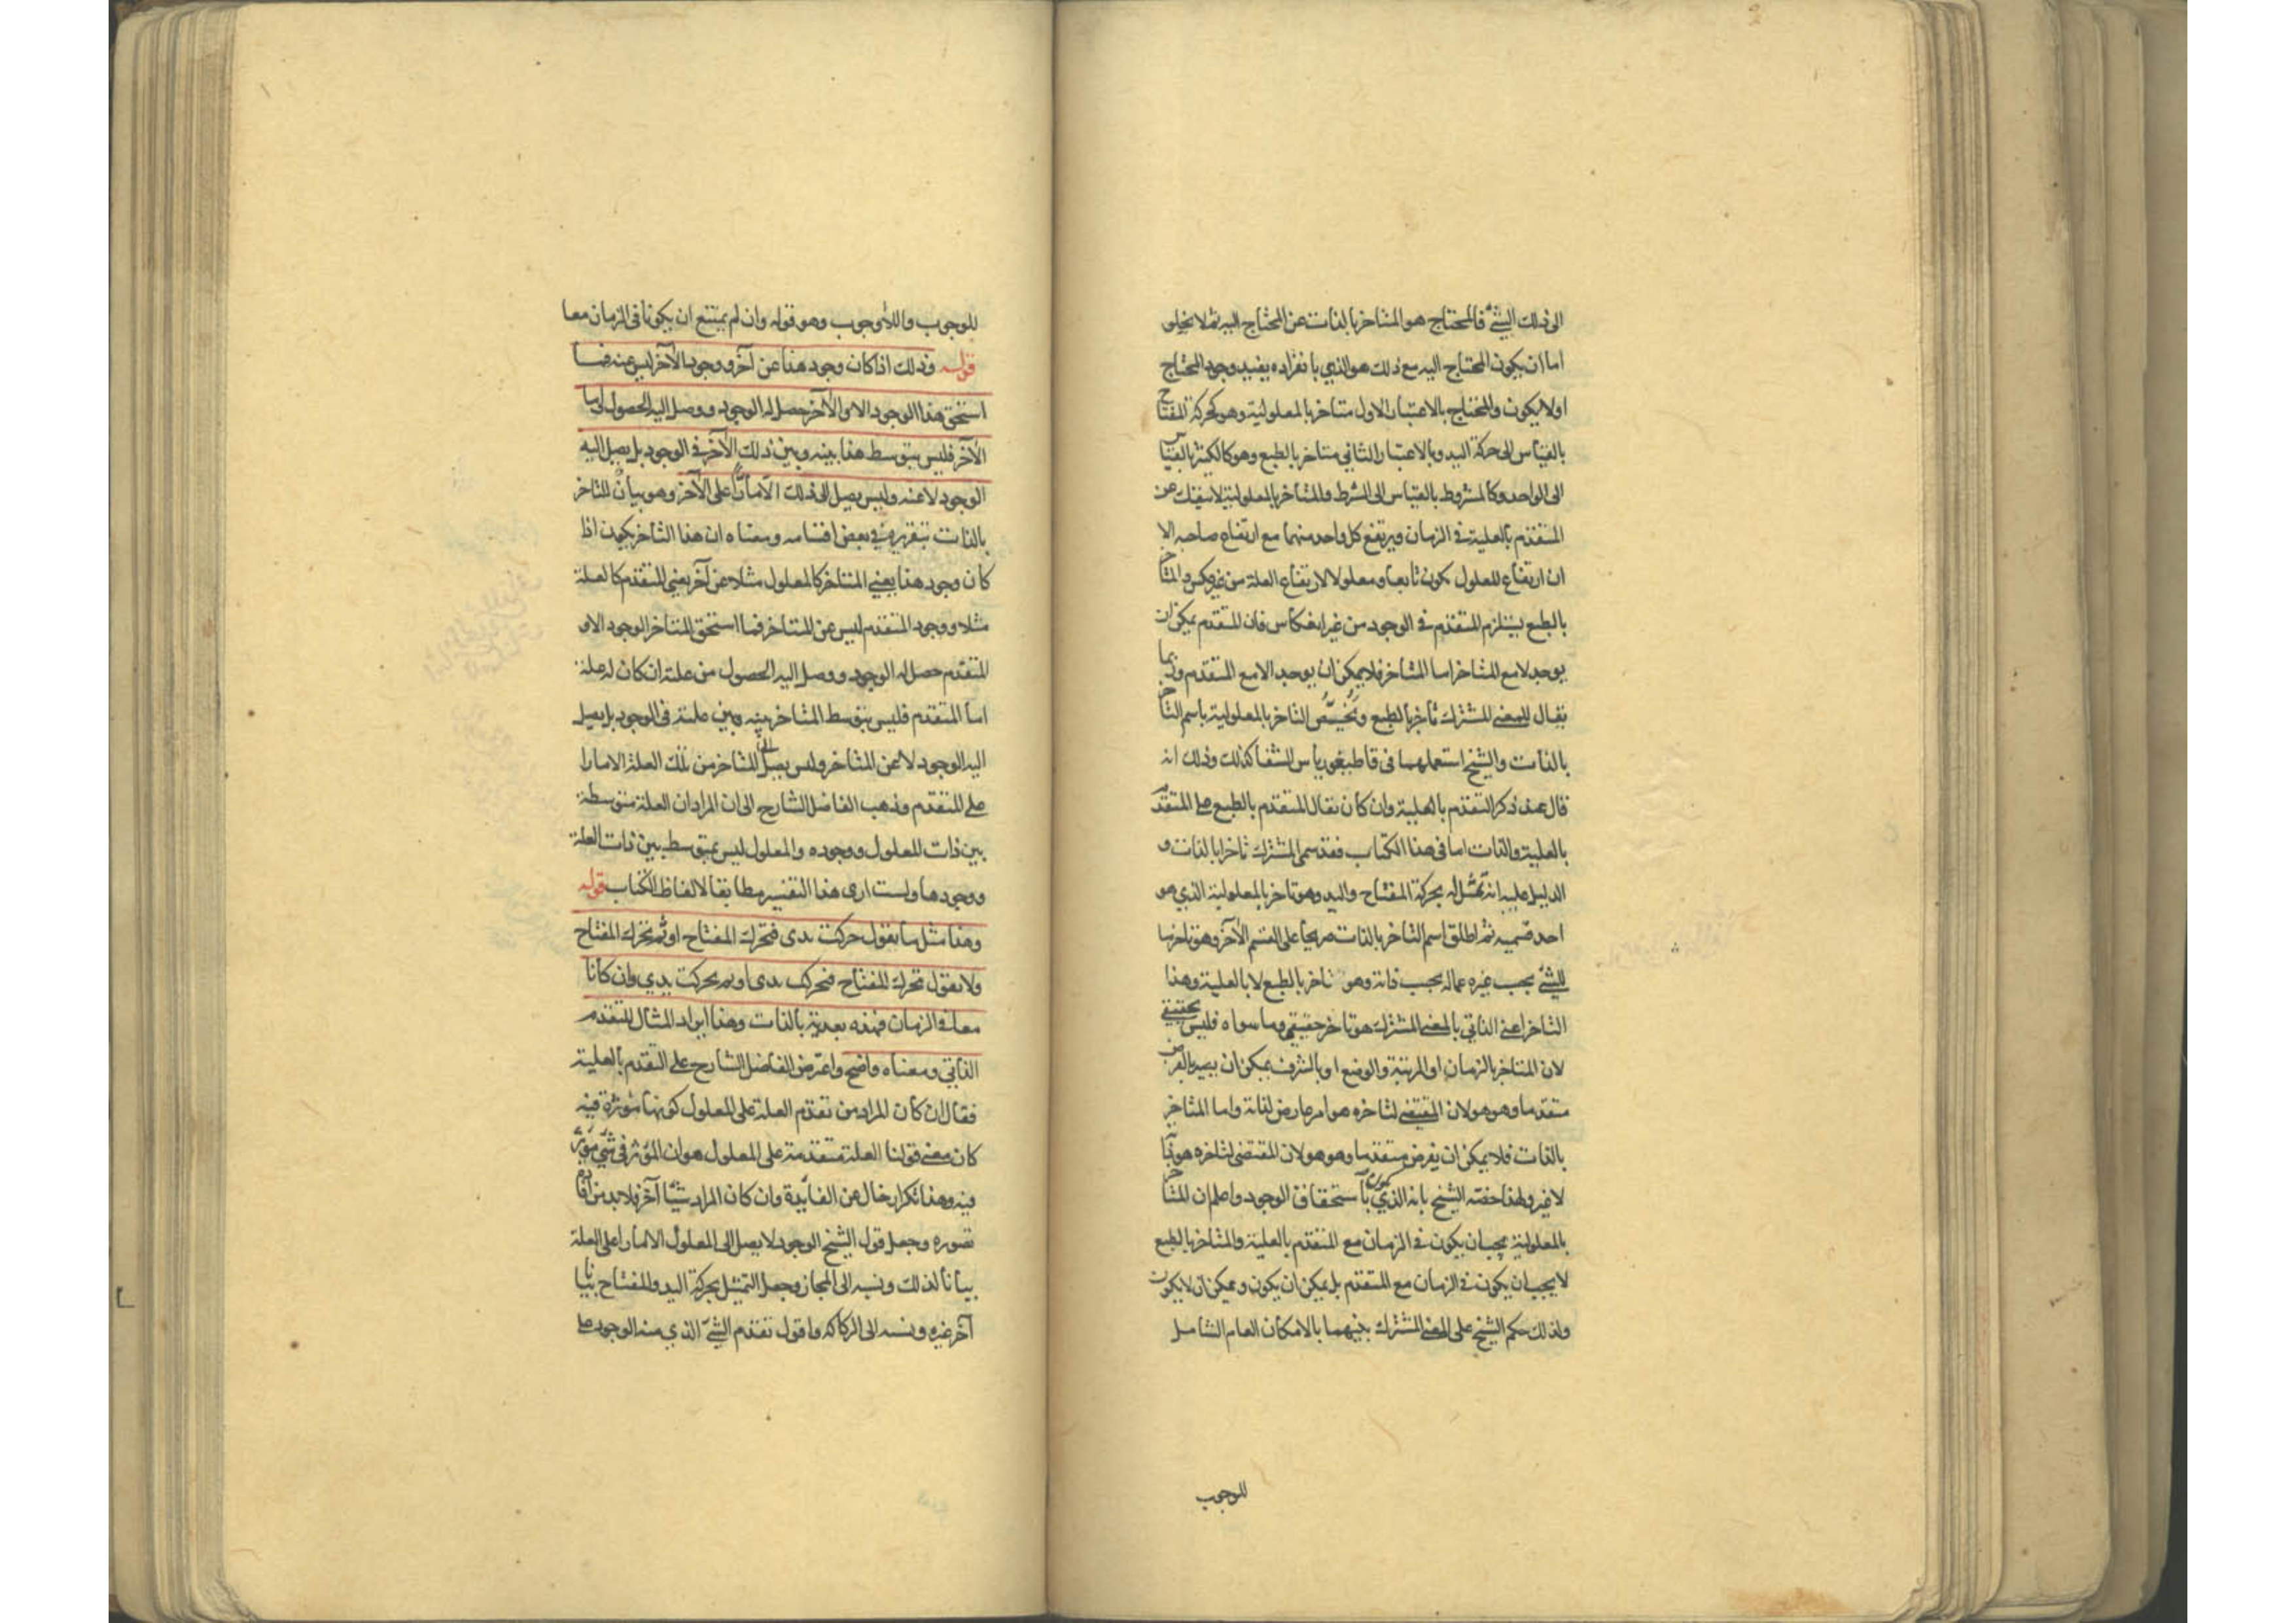 الى ذلك الشئ فالمحتاج هو المتاخر بالذات عن المحتاج اليه ثم لا يخلو
اما ان يكون المحتاج اليه مع ذلك هو الذي بانفراده يفيد وجود المحتاج
اولا يكون والمحتاج بالاعتبار الاول متاخر بالمعلولية وهو كحركة المفتاح
بالقياس الى حركة اليد وبالاعتبار الثاني متاخر بالطبع وهو كالكثير بالقياس
الى الواحد وكالمشروط بالقياس الى الشرط والمتاخر بالمعلولية لا ينفك عن
المتقدم بالعلية في الزمان ويرتفع كل واحد منهما مع ارتفاع صاحبه الا
ان ارتفاع المعلول يكون تابعا ومعلولا لارتفاع العلة من غير عكس والمتاخر
بالطبع يستلزم المتقدم في الوجود من غير انعكاس فان المتقدم يمكن ان
يوجد لا مع المتاخر اما المتاخر فلا يمكن ان يوجد الا مع المتقدم وربما
يقال للمعنى المشترك تأخر بالطبع ويُخَصّص التاخر بالمعلولية باسم التاخر
بالذات والشيخ استعملهما في قاطيغورياس الشفا كذلك وذلك انه
قال عند ذكر التقدم بالعلية وان كان يقال المتقدم بالطبع على المتقدم
بالعلية والذات اما في هذا الكتاب فقد سمى المشترك تاخرا بالذات و
الدليل عليه انه تمثّل له بحركة المفتاح واليد وهو تاخر بالمعلولية الذي هو
احد قسميه ثم اطلق اسم التاخر بالذات صريحا على القسم الآخر وهو تاخر ما
للشئ بحسب غيره عماله بحسب ذاته وهو تاخر بالطبع لا بالعلية وهذا
التاخر اعنى الذاتي بالمعنى المشترك هو تاخر حقيقي وما سواه فليس بحقيقي
لان المتاخر بالزمان او المرتبة والوضع او بالشرف يمكن ان يصير بالفرض
متقدما وهو هو لان المقتضى لتاخره هو امر عارض لذاته واما المتاخر
بالذات فلا يمكن ان يفرض متقدما وهو هو لان المقتضى لتاخره هو ذاته
لا غير ولهذا خصّه الشيخ بانه الذي يكون باستحقاق الوجود واعلم ان المتاخر
بالمعلولية يجب ان يكون في الزمان مع المتقدم بالعلية والمتاخر بالطبع
لا يجب ان يكون في الزمان مع المتقدم بل يمكن ان يكون ويمكن ان لا يكون
ولذلك حكم الشيخ على المعنى المشترك بينهما بالامكان العام الشامل
للوجوب
للوجوب واللاوجوب وهو قوله وان لم يمتنع ان يكونا في الزمان معا
قوله وذلك اذا كان وجود هذا عن آخر ووجود الآخر ليس عنه فما
استحق هذا الوجود الا والآخر حصل له الوجود ووصل اليه الحصول واما
الآخر فليس يتوسط هذا بينه وبين ذلك الآخر في الوجود بل يصل اليه
الوجود لا عنه وليس يصل الى ذلك الا مارّا على الآخر وهو بيان للتاخر
بالذات بتقريره في بعض اقسامه ومعناه ان هذا التاخر يكون اذا
كان وجود هذا يعني المتاخر كالمعلول مثلا عن آخر يعني المتقدم كالعلة
مثلا ووجود المتقدم ليس عن المتاخر فما استحق المتاخر الوجود الا و
المتقدم حصل له الوجود ووصل اليه الحصول من علته ان كان له علة
اما المتقدم فليس يتوسط المتاخر بينه وبين علته في الوجود بل يصل
اليه الوجود لا عن المتاخر وليس يصل الى المتاخر من تلك العلة الا مارا
على المتقدم وذهب الفاضل الشارح الى ان المراد ان العلة متوسطة
بين ذات المعلول ووجوده والمعلول ليس بمتوسط بين ذات العلة
ووجودها ولست ارى هذا التفسير مطابقا لالفاظ الكتاب قوله
وهذا مثل ما يقول حركت يدى فتحرك المفتاح او ثم تحرك المفتاح
ولا يقول تحرك المفتاح فتحركت يدى او ثم تحركت يدي وان كانا
معا في الزمان فهذه بعدية بالذات وهذا ايراد المثال للتقدم
الذاتي ومعناه واضح واعترض الفاضل الشارح على التقدم بالعلية
فقال ان كان المراد من تقدم العلة على المعلول كونها مؤثرة فيه
كان معنى قولنا العلة متقدمة على المعلول هو ان المؤثر في شئ مؤثر
فيه وهذا تكرار خال عن الفايدة وان كان المراد شيئا آخر فلا بد من افادة
تصوره وجعل قول الشيخ الوجود لا يصل الى المعلول الا مارا على العلة
بيانا لذلك ونسبه الى المجاز وجعل التمثيل بحركة اليد والمفتاح بيانا
آخر غيره ونسبه الى الركاكة واقول تقدم الشئ الذي منه الوجود على